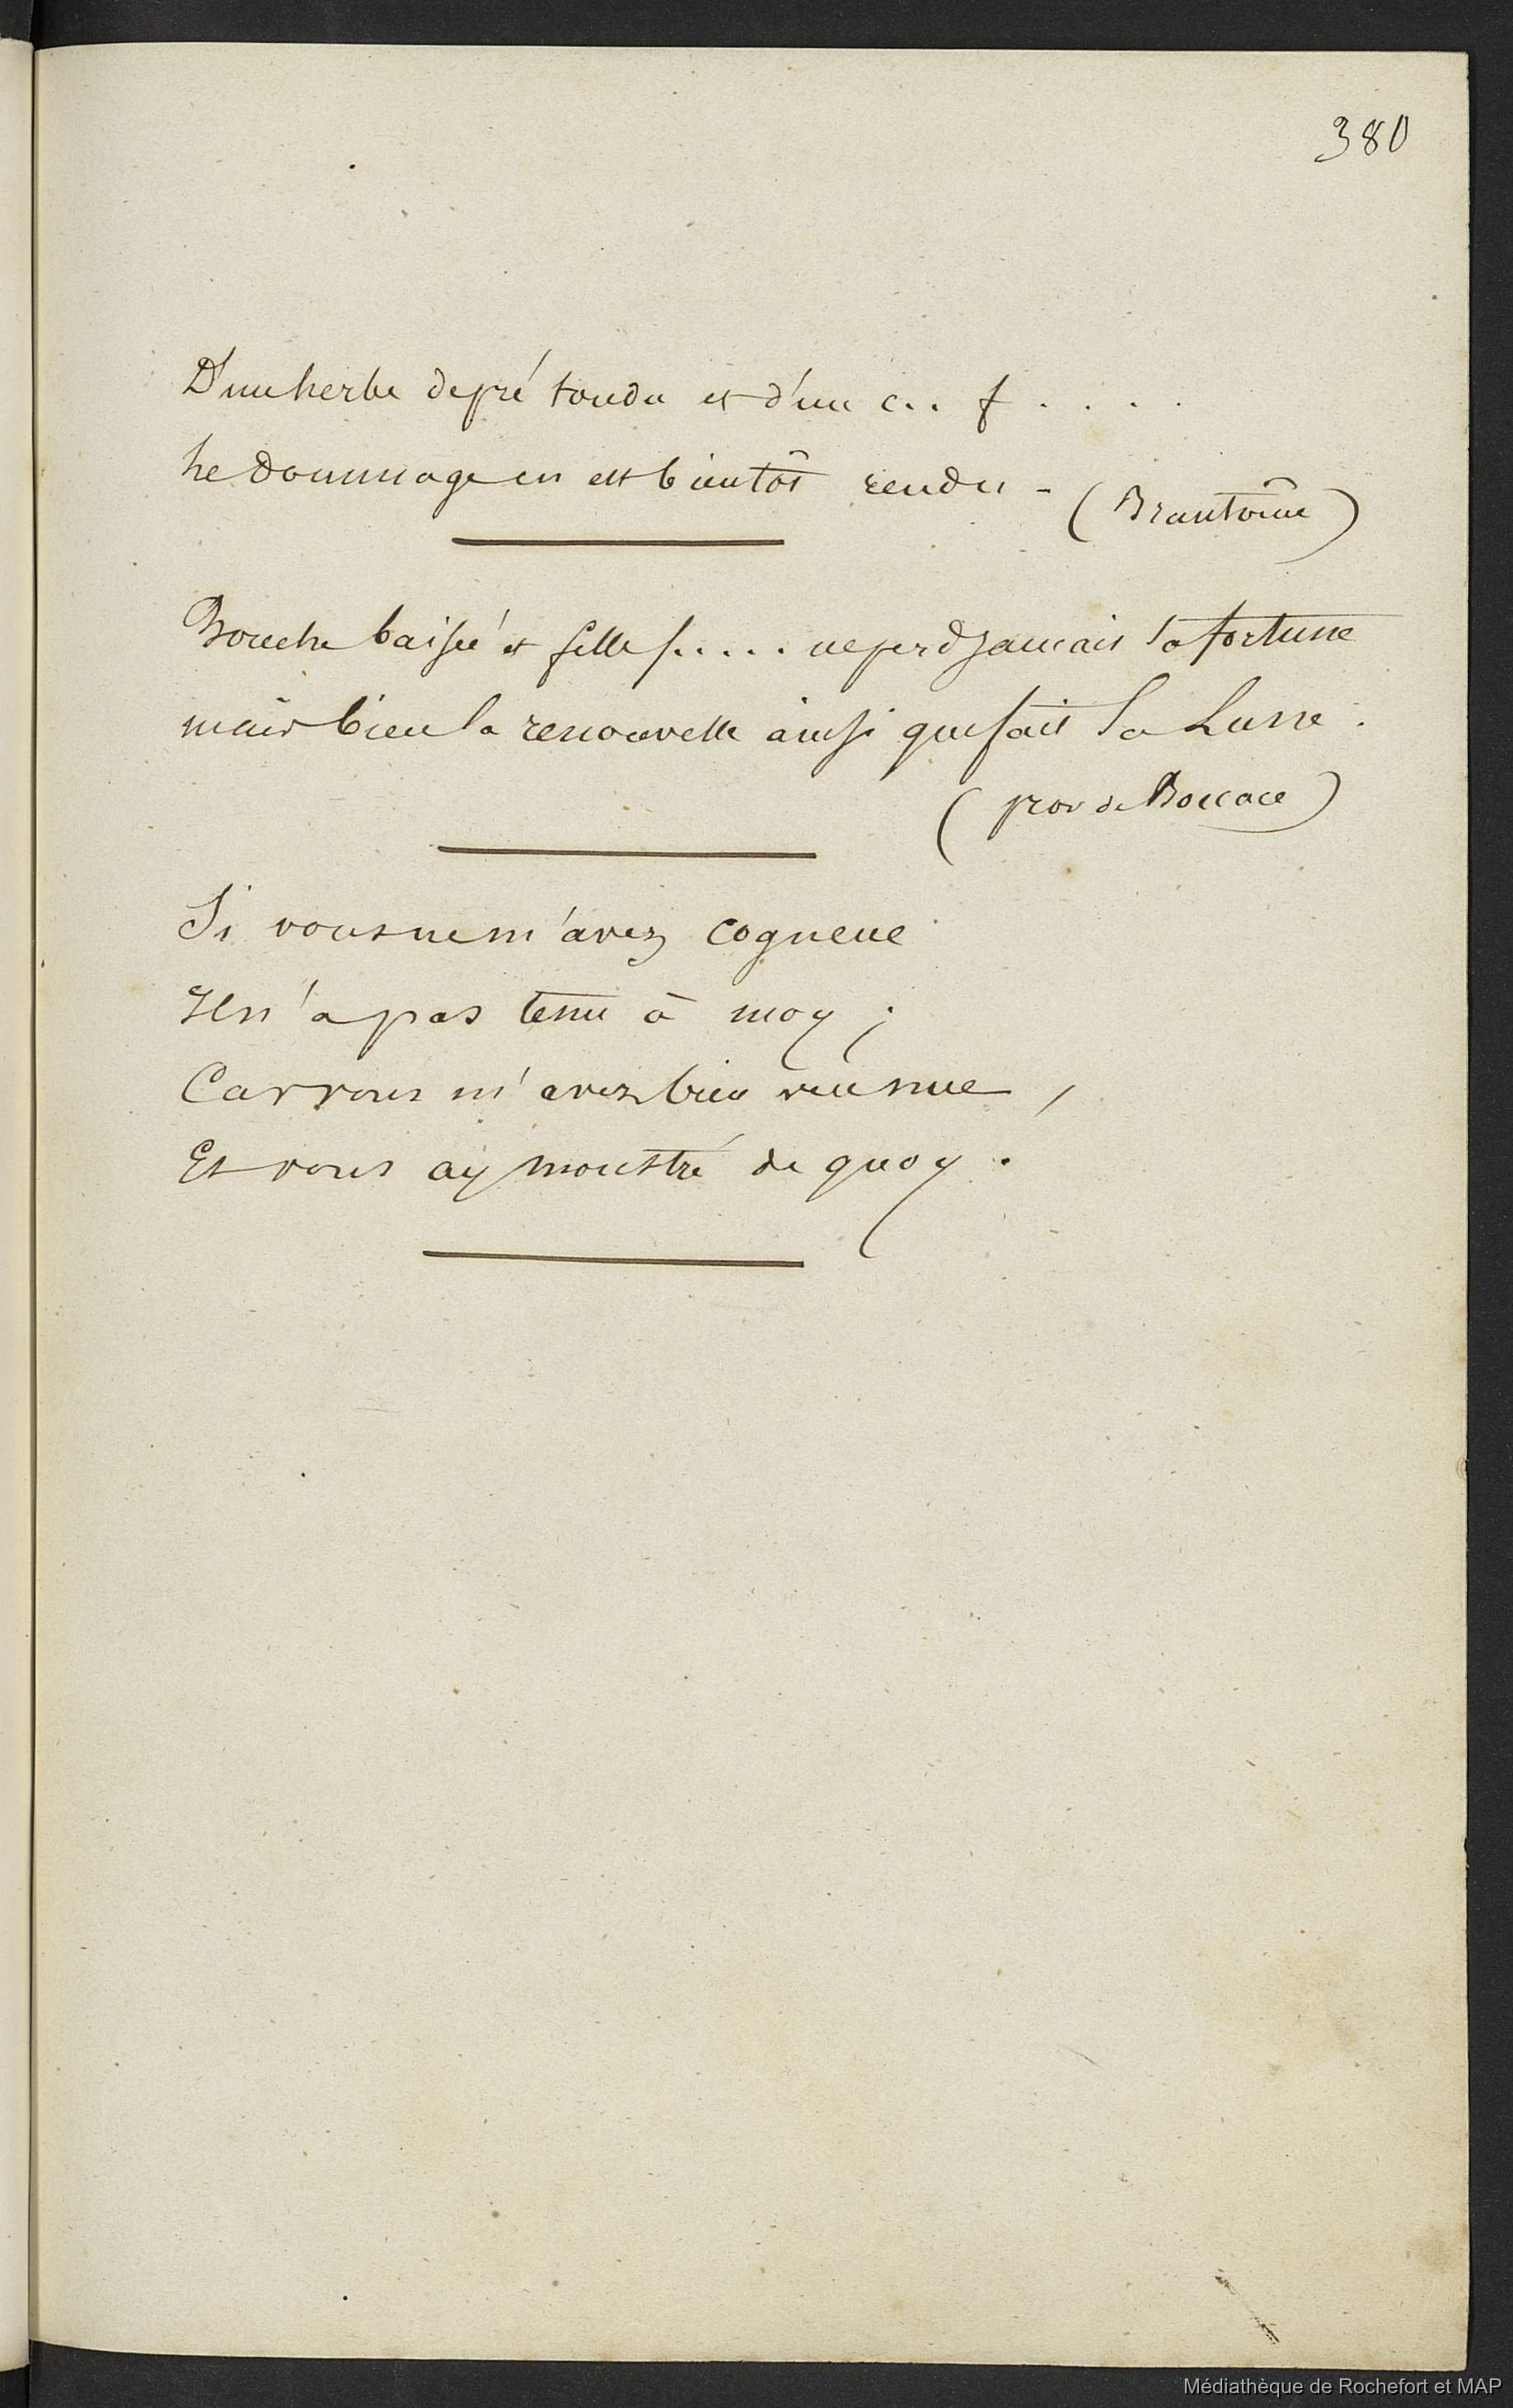 380
D'une herbe de pré tondu et d'un c.. f . . . .
Le dommage en est bientôt rendu - (Brantôme)
Bouche baisée et fille f..... ne perd jamais sa fortune
mais bien la renouvelle ainsi que fait la Lune.
(prov de Boccace)
Si vous ne m'avez cogneue
Il n'a pas tenu à moy ;
Car vous m'avez bien veu nue,
Et vous ay monstré de quoy.
Médiathèque de Rochefort et MAP